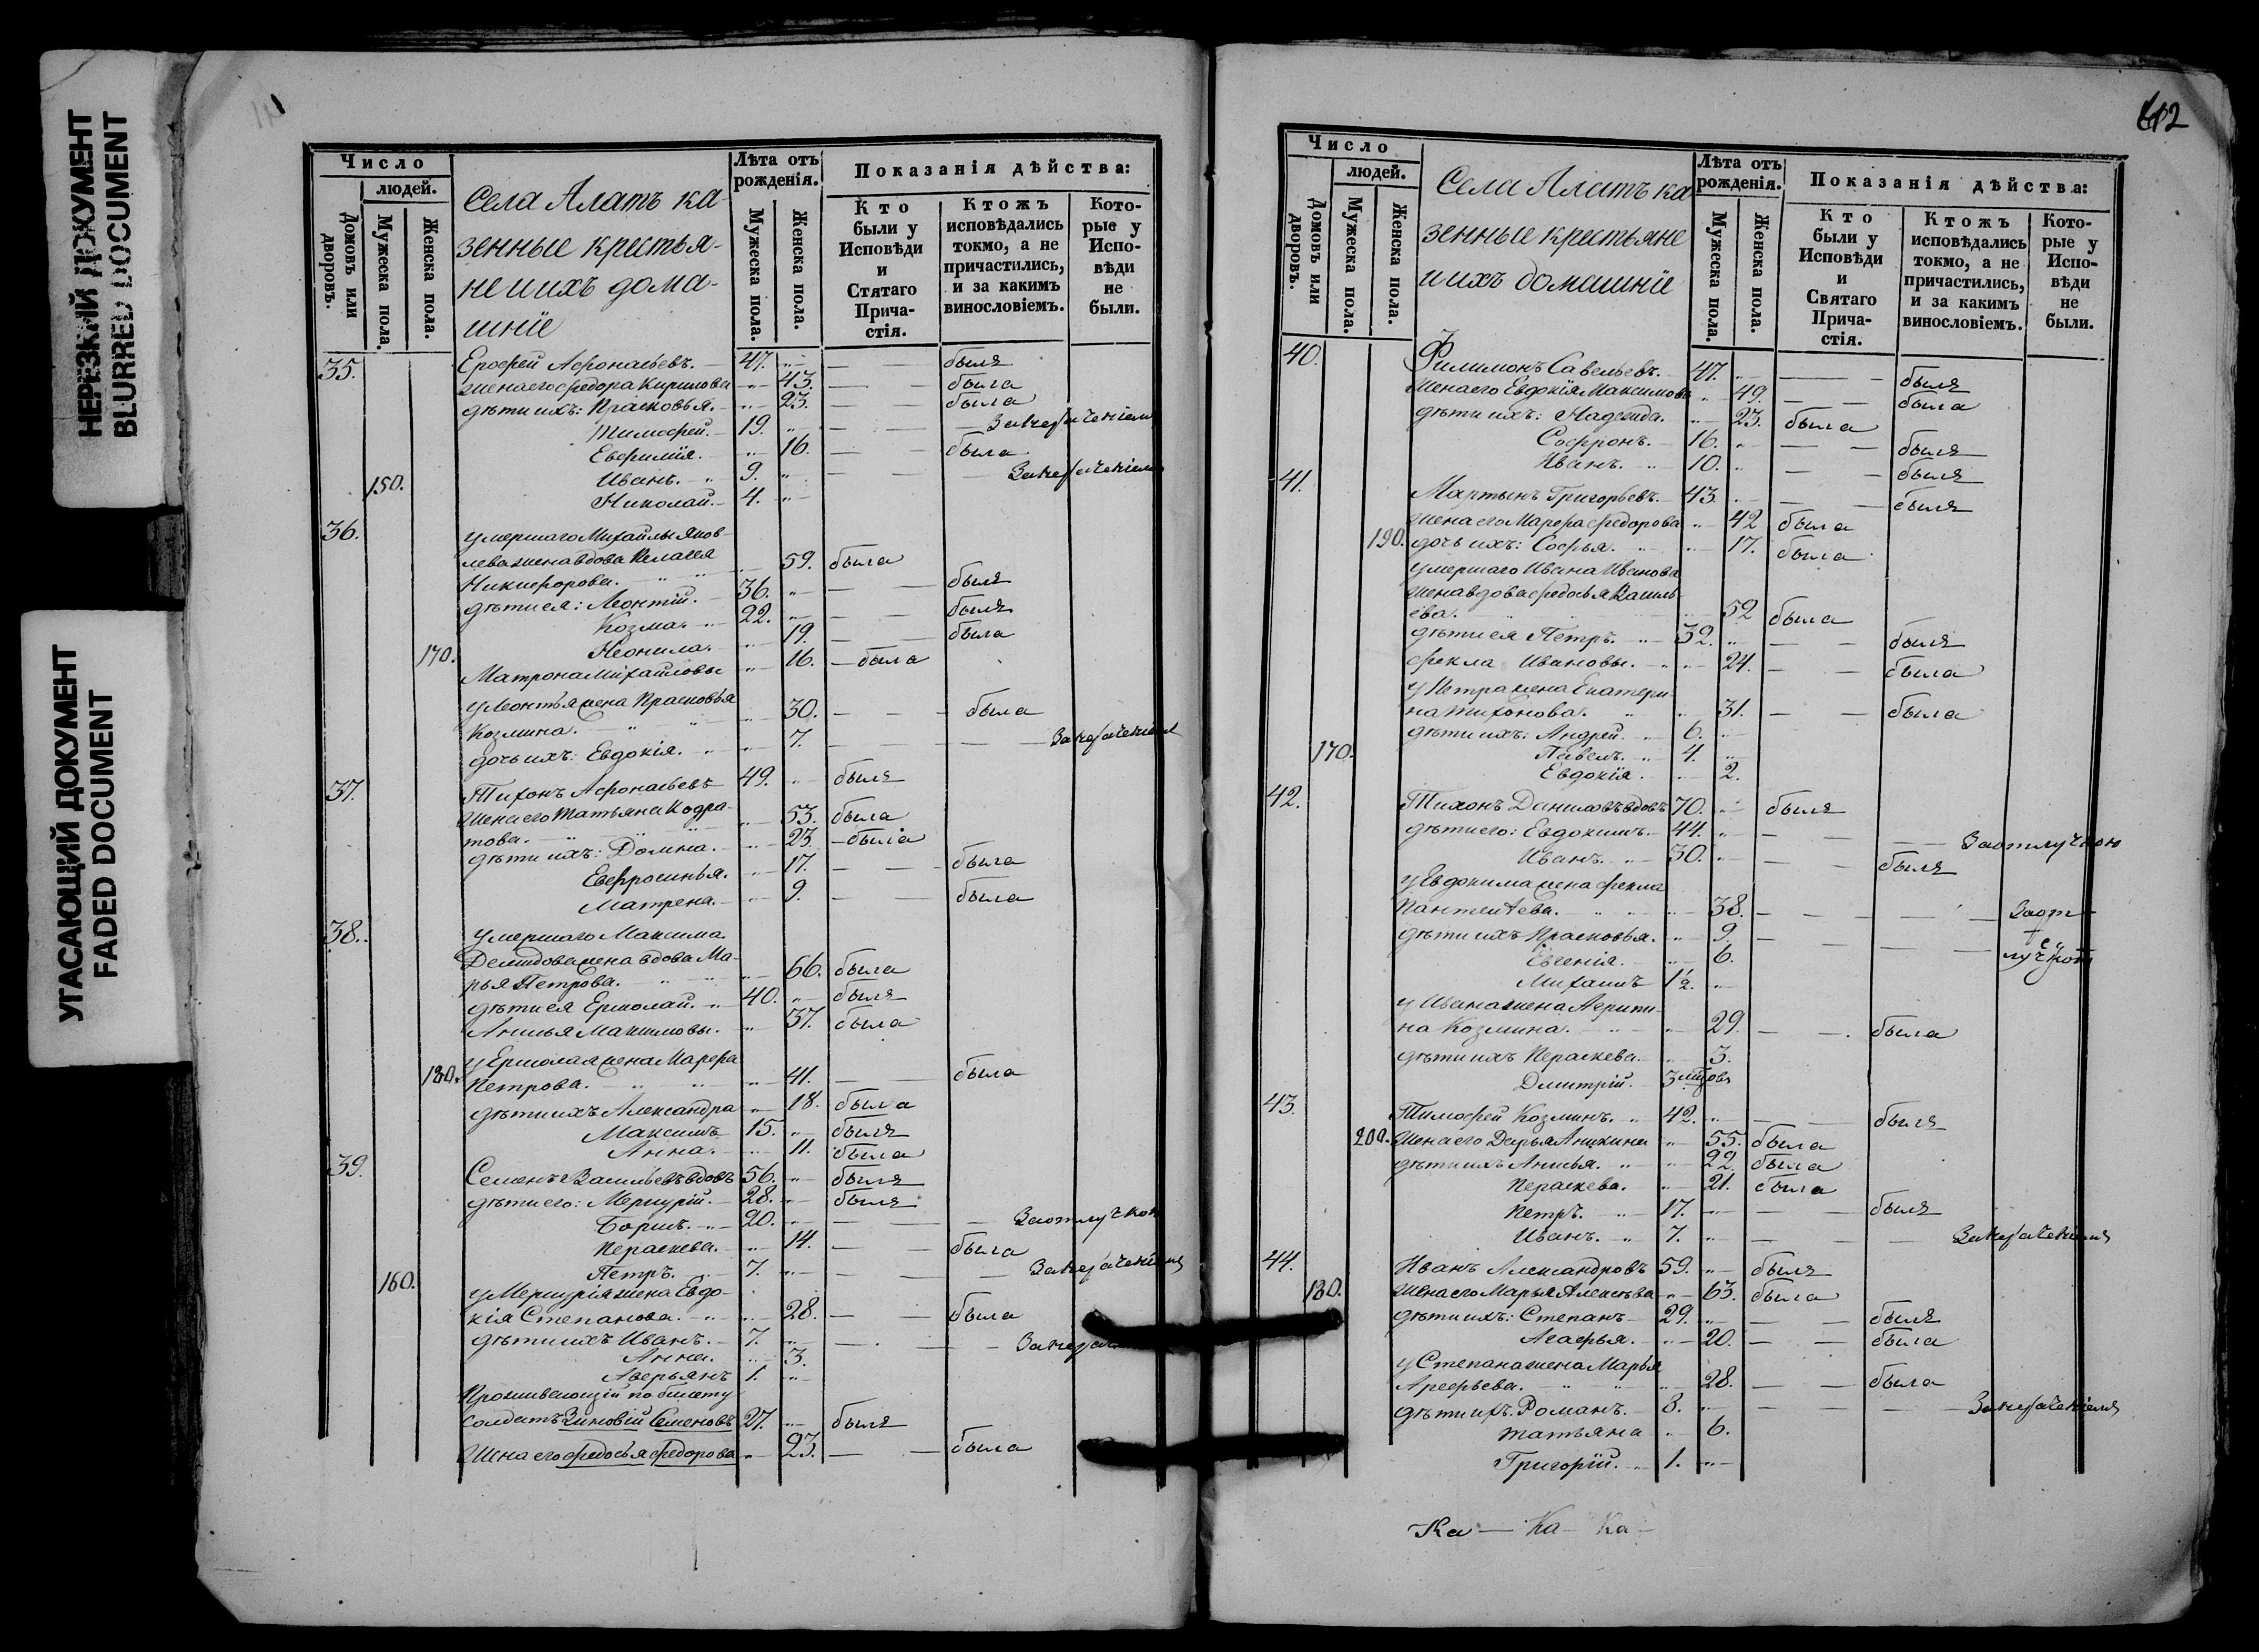 НЕРЕЗКИЙ ДОКУМЕНТ
BLURRED DOCUMENT
УГАСАЮЩИЙ ДОКУМЕНТ
FADED DOCUMENT
Число
людей.
Домовъ или дворовъ.
Мужеска пола.
Женска пола.
Села Алатъ ка-
зенные крестья-
не и ихъ дома-
шніе
Лѣта отъ рожденія.
Мужеска пола.
Женска пола.
Показанія дѣйства:
Кто были у Исповѣди и Стятаго Прича- стія.
Ктожъ исповѣдались токмо, а не причастились, и за какимъ винословіемъ.
Кото- рые у Испо- вѣди не были.
35. Ерофей Афонасьевъ. 47. былъ
жена его Федора Кирилова 43. была
дѣти ихъ: Прасковья. 23. была
Тимофей. 19. За нерачениемъ
Евфимія. 16. была
Иванъ. 9. За нерачениемъ
150. Николай. 4.
36. умершаго Михайлы Яков-
лева жена вдова Пелагея
Никифорова. 59. была
дѣти ея: Леонтій. 36. былъ
Козма. 22. былъ
Неонила. 19. была
170. Матрона Михайловы 16. была
у Леонтья жена Прасковья
Козмина. 30. была
дочь ихъ: Евдокія. 7. За нерачениемъ
37. Тихонъ Афонасьевъ 49. былъ
жена его Татьяна Кодра-
това. 53. была
дѣти ихъ: Домна. 23. была
Евфросинья. 17. была
Матрена. 9. была
38. умершаго Максима
Демидова жена вдова Ма-
рья Петрова. 66. была
дѣти ея Ермолай. 40. былъ
Анисья Максимовы. 37. была
у Ермолая жена Марфа
180. Петрова. 41. была
дѣти ихъ Александра 18. была
Максимъ 15. былъ
Анна. 11. была
39. Семенъ Васильевъ вдовъ 56. былъ
дѣти его: Меркурій. 28. былъ
Борисъ. 20. За отлучкою
Параскева. 14. была
160. Петръ. 7. За нерачениемъ
у Меркурія жена Евдо-
кія Степанова. 28. была
дѣти ихъ Иванъ. 7.
Анна. 3.
Аверьянъ 1.
Проживающій по билету
солдатъ Зиновій Семеновъ 27. былъ
жена его Федосья Федорова 23. была
612
Число
людей.
Домовъ или дворовъ.
Мужеска пола.
Женска пола.
Села Алатъ ка
зенные крестьяне
и ихъ домашніе
Лѣта отъ рожденія.
Мужеска пола.
Женска пола.
Показанія дѣйства:
Кто были у Исповѣди и Святаго Прича- стія.
Ктожъ исповѣдались токмо, а не причастились, и за какимъ винословіемъ.
Кото- рые у Испо- вѣди не были.
40. Филимонъ Савельевъ. 47. былъ
жена его Евдокія Максимова 49. была
дѣти ихъ: Надежда. 23. была
Софронъ. 16. былъ
Иванъ. 10. былъ
41. Мартынъ Григорьевъ. 43. былъ
жена его Марфа Федорова 42 была
190. дочь ихъ: Софья. 17. была
умершаго Ивана Иванова
жена вдова Федосья Василь
ева. 52 была
дѣти ея Петръ. 32. былъ
Фекла Ивановы. 24. была
у Петра жена Екатери-
на Тихонова. 31. была
дѣти ихъ: Андрей. 6.
170. Павелъ. 4.
Евдокія. 2.
42. Тихонъ Даниловъ вдовъ 70. былъ
дѣти его: Евдокимъ. 44. За отлучкою
Иванъ. 30. былъ
у Евдокима жена Фекла
Пантелѣева. 38. За от-
дѣти ихъ Прасковья. 9.
Евгенія. 6.
Михаилъ 1½.
у Ивана жена Агрипи-
на Козмина. 29. была
дѣти ихъ Параскева. 3.
Дмитрій. 3 мцовъ
43. Тимофей Козминъ. 42. былъ
200. жена его Дарья Аникина 55. была
дѣти ихъ Анисья. 22. была
Параскева. 21. была
Петръ. 17. былъ
Иванъ. 7. За нерачениемъ
44. Иванъ Александровъ 59. былъ
180. жена его Марья Алексѣева 63. была
дѣти ихъ: Степанъ 29. былъ
Агафья. 20. была
у Степана жена Марья
Арефьева. 28. была
дѣти их. Романъ. 8. За нерачениемъ
Татьяна 6.
Григорій. 1.
Ка — Ка — Ка —